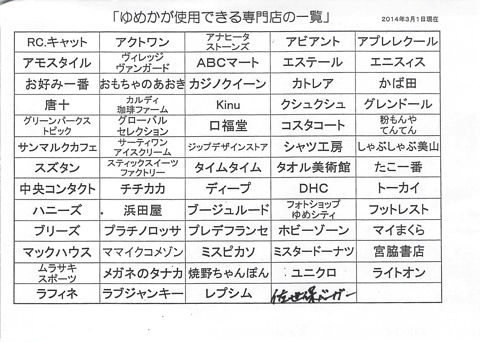 「ゆめかが使用できる専門店の一覧」
2014年3月1日現在
RC.キャット アクトワン アナヒータストーンズ アビアント アプレレクール
アモスタイル ヴィレッジヴァンガード ABCマート エステール エニスィス
お好み一番 おもちゃのあおき カジノクイーン カトレア かば田
唐十 カルディ珈琲ファーム Kinu クシュクシュ グレンドール
グリーンパークストピック グローバルセレクション 口福堂 コスタコート 粉もんやてんてん
サンマルクカフェ サーティワンアイスクリーム ジップデザインストア シャツ工房 しゃぶしゃぶ美山
スズタン スティックスイーツファクトリー タイムタイム タオル美術館 たこ一番
中央コンタクト チチカカ ディープ DHC トーカイ
ハニーズ 浜田屋 ブージュルード フォトショップゆめシティ フットレスト
ブリーズ プラチノロッサ プレデフランセ ホビーゾーン マイまくら
マックハウス ママイクコメゾン ミスピカソ ミスタードーナツ 宮脇書店
ムラサキスポーツ メガネのタナカ 焼野ちゃんぽん ユニクロ ライトオン
ラフィネ ラブジャンキー レプシム 佐世保バーガー